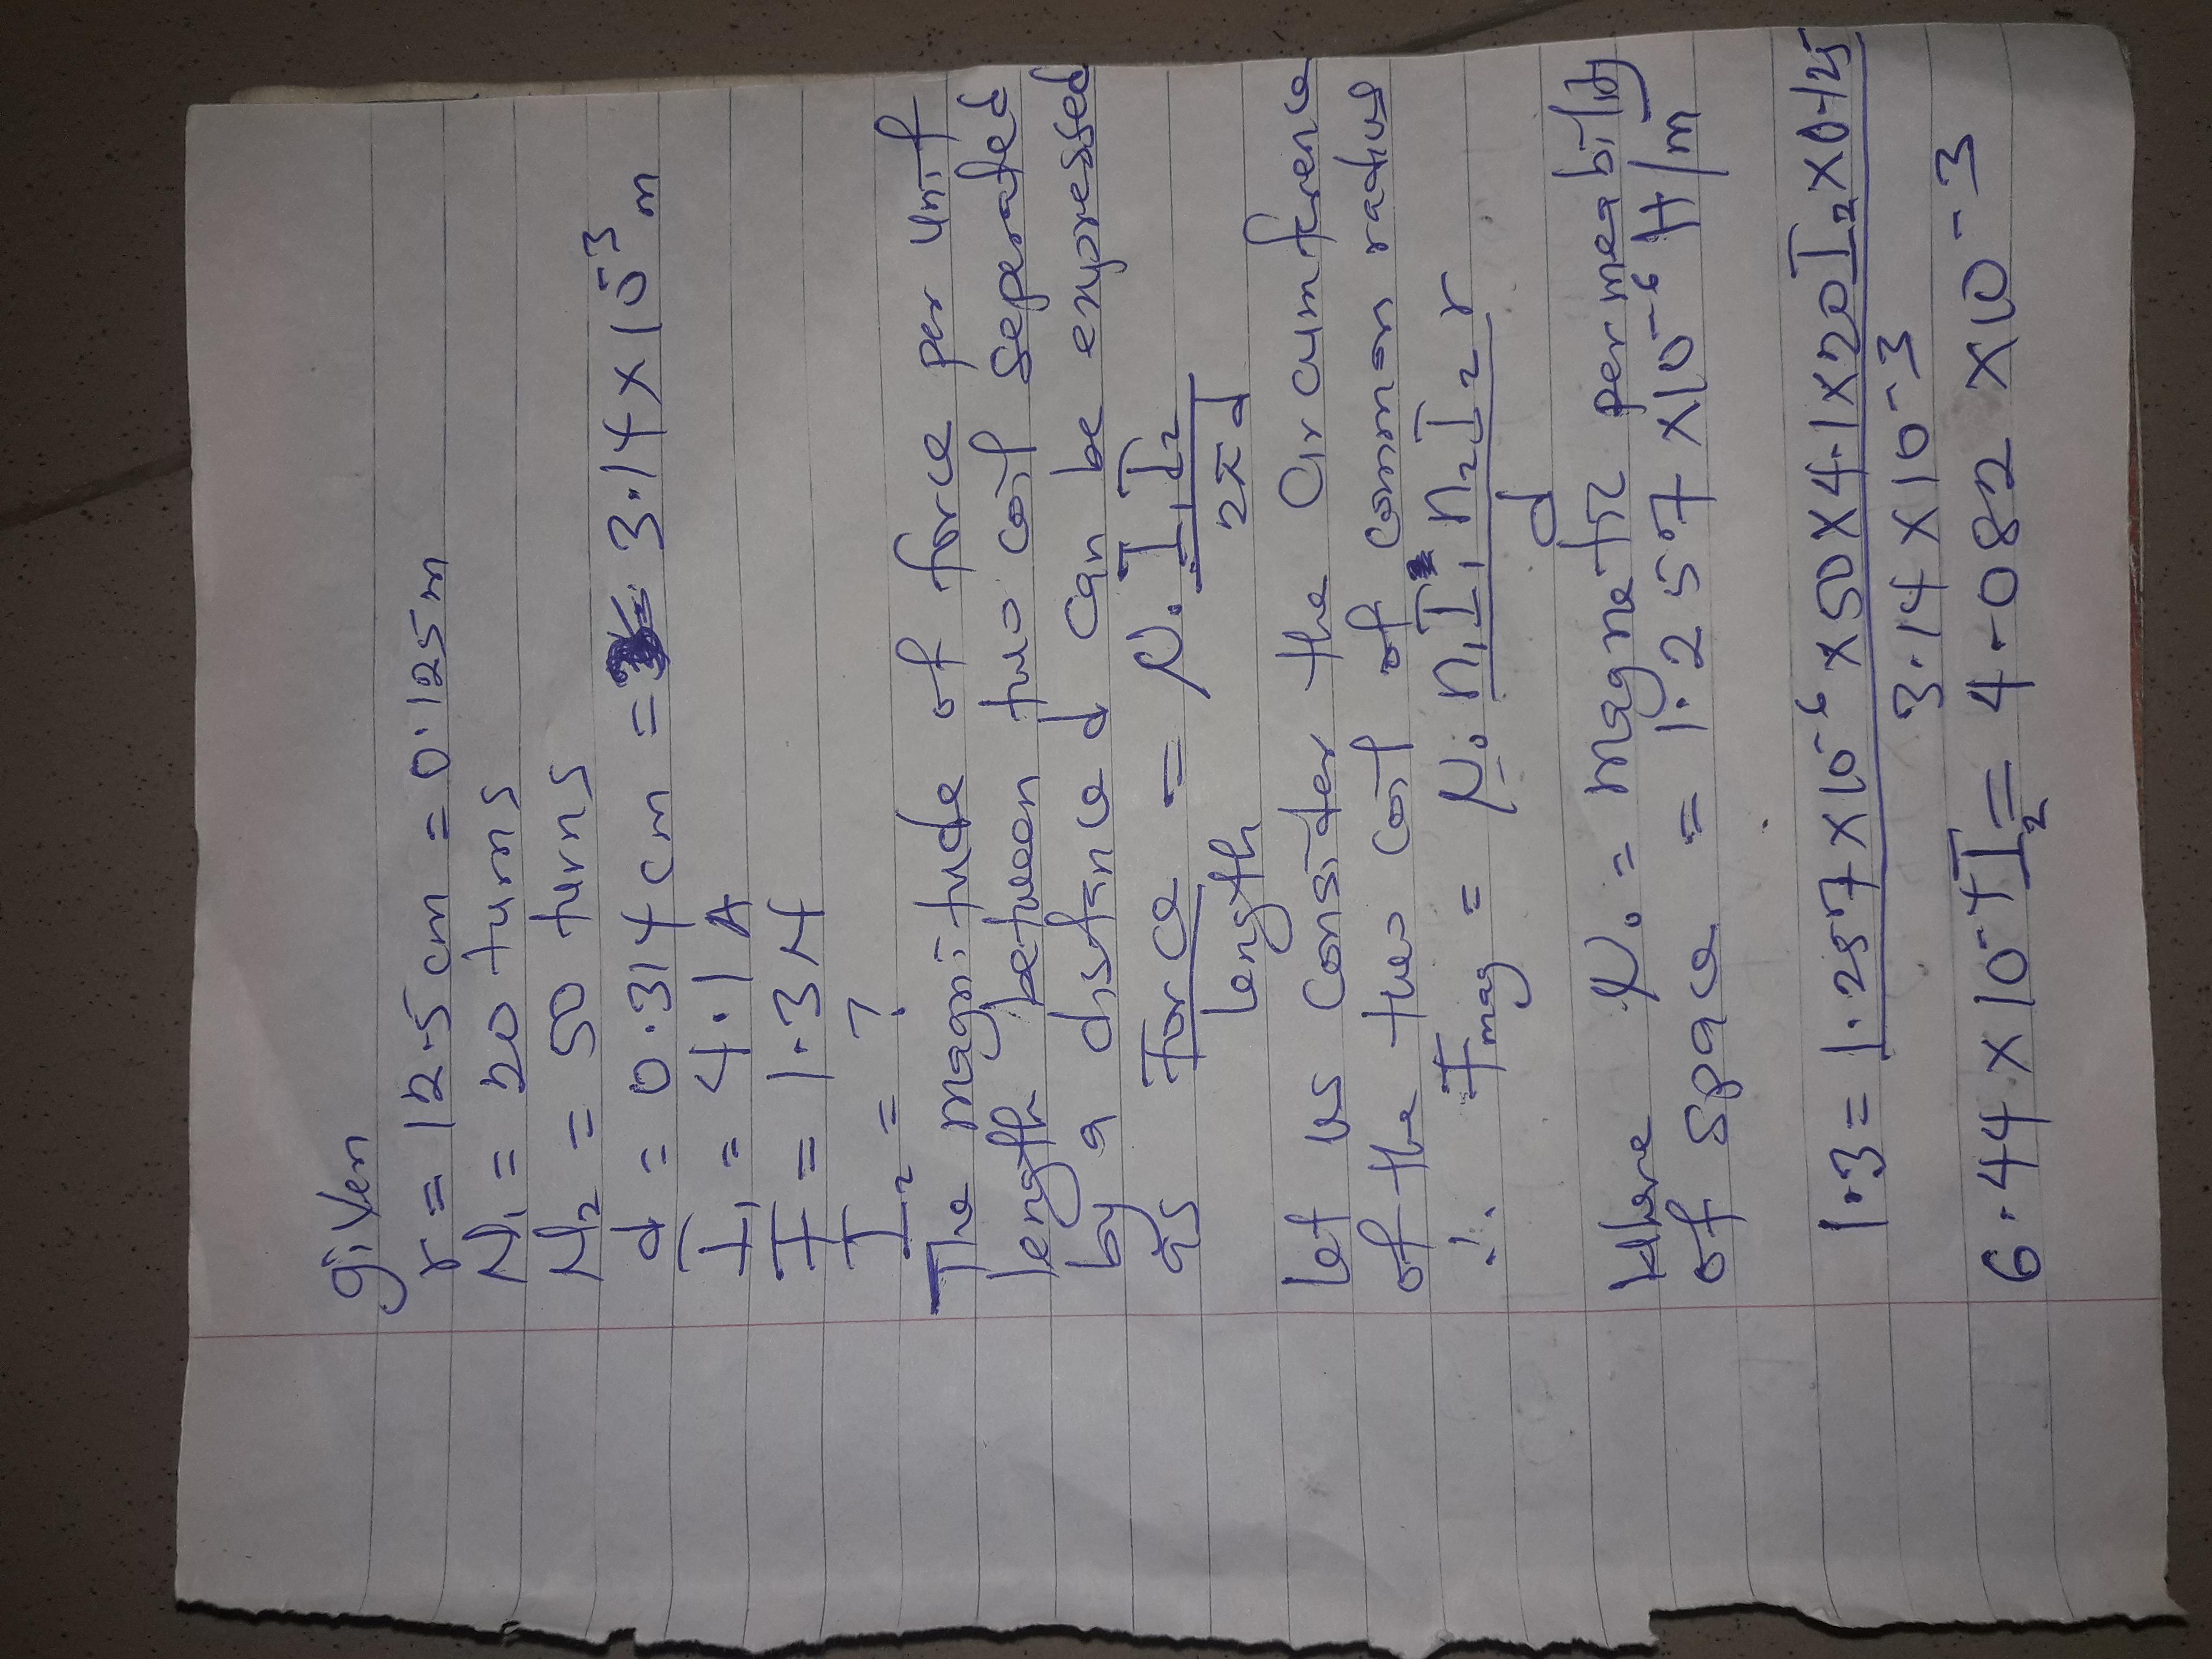 given
r = 12.5 cm = 0.125m
N₁ = 20 turns
N₂ = 50 turns
d = 0.314 cm = 3.14 x 10⁻³ m
I₁ = 4.1 A
F = 1.3 N
I₂ = ?
The magnitude of force per unit
length between two coil seperated
by a distance d can be expressed
as Force/length = μ₀ I₁ I₂/2πd
let us consider the circumference
of the two coil of common radius
∴ Fmag = μ₀ n₁ I₁ n₂ I₂ r/d
Where μ₀ = magnetic permeability
of space = 1.257 x10⁻⁶ H/m
1.3 = 1.257 x10⁻⁶ x 50 x 4.1 x 20 I₂ x 0.125/3.14 x 10⁻³
6.44 x 10⁻⁴ I₂ = 4.082 x10⁻³